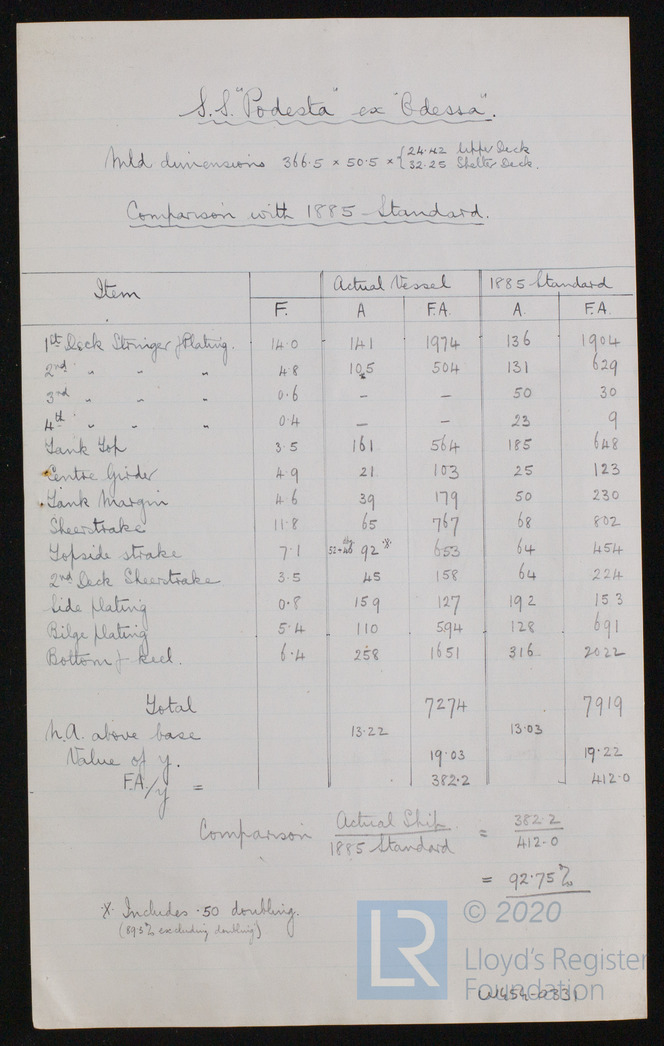 S.S. "Podesta" ex "Odessa".
Mld dimensions 366.5 × 50.5 × { 24.42 Upper Deck
32.25 Shelter Deck.
Comparison with 1885 - Standard.
Item Actual Vessel 1885 Standard
F. A F.A. A. F.A.
1st Deck Stringer & Plating. 14.0 141 1974 136 1904
2nd " " " 4.8 105 504 131 629
3rd " " " 0.6 - - 50 30
4th " " " 0.4 - - 23 9
Tank Top 3.5 161 564 185 648
Centre Girder 4.9 21 103 25 123
Tank Margin 4.6 39 179 50 230
Sheerstrake 11.8 65 767 68 802
Topside strake 7.1 50+46 92 ※ 653 64 454
2nd Deck Sheerstrake 3.5 45 158 64 224
Side plating 0.8 159 127 192 153
Bilge plating 5.4 110 594 128 691
Bottom & keel. 6.4 258 1651 316 2022
Total 7274 7919
N.A. above base 13.22 13.03
Value of y. 19.03 19.22
F.A./y = 382.2 412.0
Comparison Actual Ship / 1885 Standard = 382.2 / 412.0
= 92.75%
※ Includes .50 doubling.
(89.5% excluding doubling)
LR © 2020
Lloyd's Register
Foundation
W454-0331